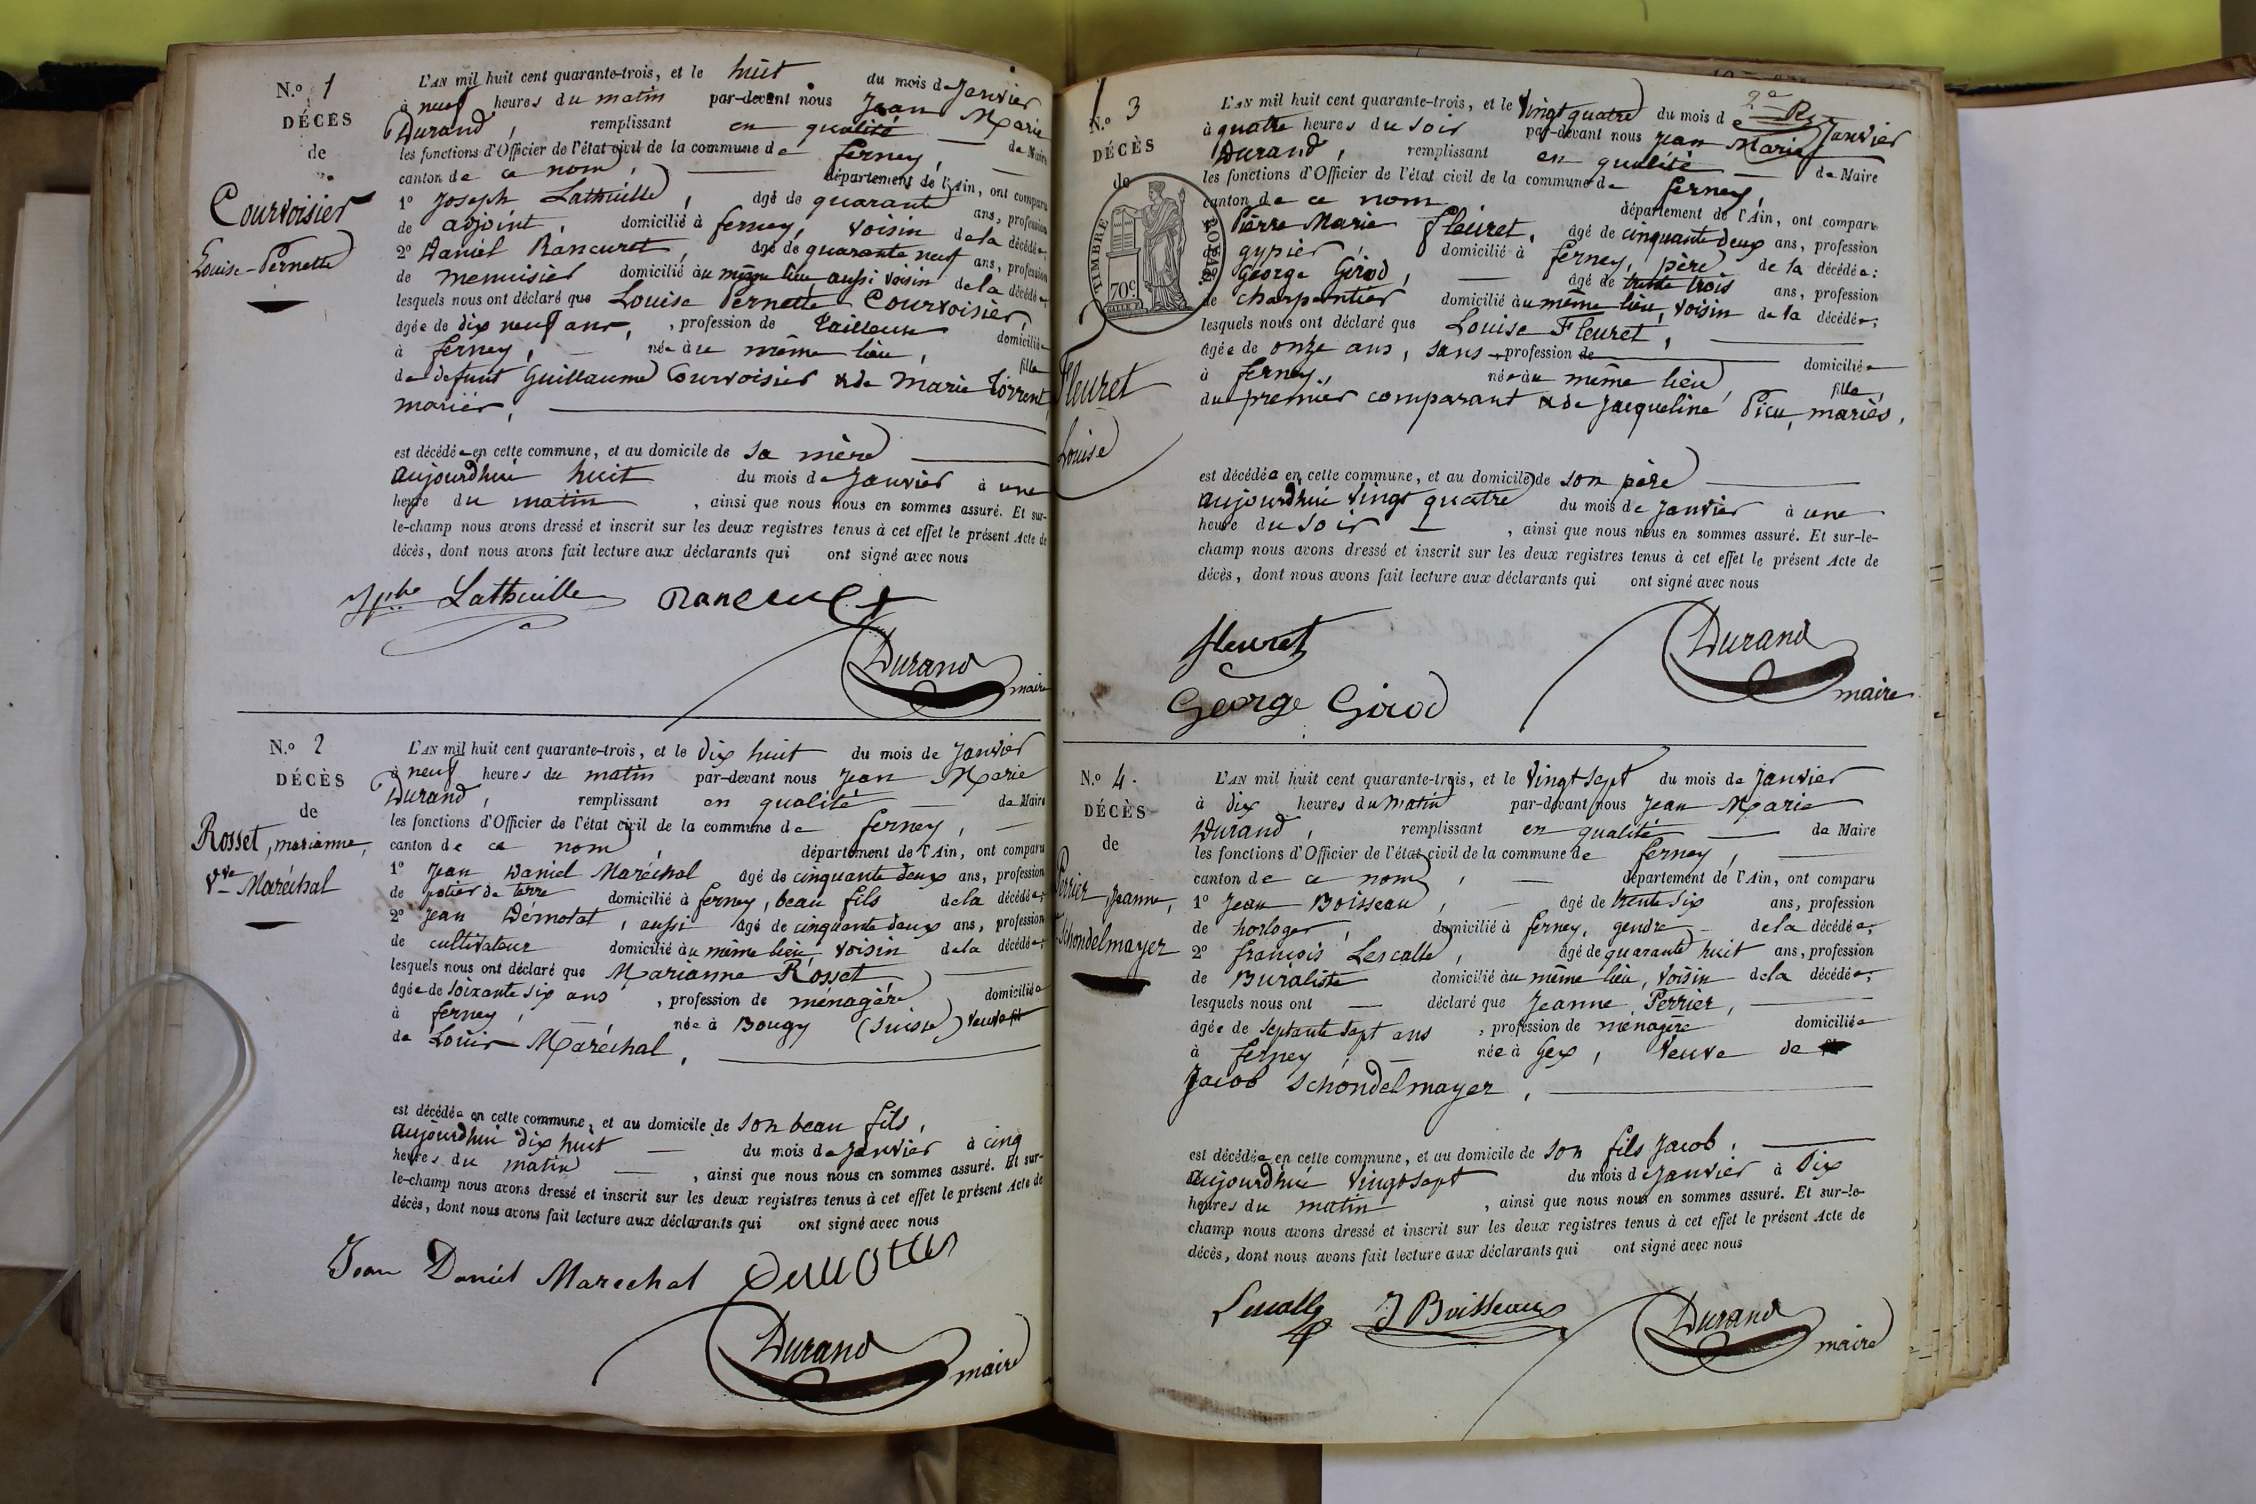 N.º 1
DÉCÈS
de
Courvoisier
Louise-Pernette
L'AN mil huit cent quarante-trois, et le huit du mois de Janvier
à neuf heures du matin par-devant nous Jean Marie
Durand, remplissant en qualité de Maire
les fonctions d'Officier de l'état civil de la commune de ferney,
canton de ce nom, département de l'Ain, ont comparu
1º Joseph Lathuille, âgé de quarante ans, profession
de adjoint, domicilié à ferney, voisin de la décédée,
2º Daniel Rancuret, âgé de quarante neuf ans, profession
de menuisier domicilié au même lieu, aussi voisin de la décédée,
lesquels nous ont déclaré que Louise Pernette Courvoisier,
âgée de dix neuf ans, , profession de tailleuse domiciliée
à ferney, née au même lieu, fille
de defunt Guillaume Courvoisier & de Marie Torrent,
mariés,
est décédée en cette commune, et au domicile de sa mère
aujourdhui huit du mois de Janvier à une
heure du matin , ainsi que nous nous en sommes assuré. Et sur-
le-champ nous avons dressé et inscrit sur les deux registres tenus à cet effet le présent Acte de
décès, dont nous avons fait lecture aux déclarants qui ont signé avec nous
Jphe Lathuille Rancuret
Durand
maire
N.º 2
DÉCÈS
de
Rosset, marianne,
Vve Maréchal
L'AN mil huit cent quarante-trois, et le dix huit du mois de Janvier
à neuf heures du matin par-devant nous Jean Marie
Durand, remplissant en qualité de Maire
les fonctions d'Officier de l'état civil de la commune de ferney,
canton de ce nom, département de l'Ain, ont comparu
1º Jean Daniel Maréchal âgé de cinquante deux ans, profession
de potier de terre domicilié à ferney, beau fils de la décédée,
2º Jean Démotat, aussi âgé de cinquante deux ans, profession
de cultivateur domicilié au même lieu, voisin de la décédée,
lesquels nous ont déclaré que Marianne Rosset
âgée de soixante six ans , profession de ménagère domiciliée
à ferney, née à Bougy (Suisse) veuve
de Louis Maréchal,
est décédée en cette commune, et au domicile de son beau fils,
aujourdhui dix huit du mois de Janvier à cinq
heures du matin , ainsi que nous nous en sommes assuré. Et sur-
le-champ nous avons dressé et inscrit sur les deux registres tenus à cet effet le présent Acte de
décès, dont nous avons fait lecture aux déclarants qui ont signé avec nous
Jean Daniel Marechal
Durand
maire
2e
N.º 3
DÉCÈS
de
TIMBRE ROYAL
70c
Fleuret
Louise
L'AN mil huit cent quarante-trois, et le vingt quatre du mois de Janvier
à quatre heures du soir par-devant nous Jean Marie
Durand, remplissant en qualité de Maire
les fonctions d'Officier de l'état civil de la commune de ferney,
canton de ce nom, département de l'Ain, ont comparu
Pierre Marie Fleuret, âgé de cinquante deux ans, profession
gypier, domicilié à ferney, père de la décédée;
George Girod, âgé de trente trois ans, profession
de charpentier domicilié au même lieu, voisin de la décédée,
lesquels nous ont déclaré que Louise Fleuret,
âgée de onze ans, sans profession de domiciliée
à ferney, née au même lieu fille,
du premier comparant & de Jacqueline Picu, mariés,
est décédée en cette commune, et au domicile de son père
aujourdhui vingt quatre du mois de Janvier à une
heure du soir , ainsi que nous nous en sommes assuré. Et sur-le-
champ nous avons dressé et inscrit sur les deux registres tenus à cet effet le présent Acte de
décès, dont nous avons fait lecture aux déclarants qui ont signé avec nous
fleuret
George Girod
Durand
maire
N.º 4.
DÉCÈS
de
Perrier Jeanne,
Schondelmayer
L'AN mil huit cent quarante-trois, et le vingt sept du mois de Janvier
à dix heures du matin par-devant nous Jean Marie
Durand, remplissant en qualité de Maire
les fonctions d'Officier de l'état civil de la commune de ferney,
canton de ce nom, département de l'Ain, ont comparu
1º Jean Boisseau, âgé de trente six ans, profession
de horloger, domicilié à ferney, gendre de la décédée,
2º françois Lescalle, âgé de quarante huit ans, profession
de Buraliste domicilié au même lieu, voisin de la décédée,
lesquels nous ont déclaré que Jeanne Perrier,
âgée de septante sept ans , profession de ménagère domiciliée
à ferney, née à Gex, veuve de
Jacob Schondelmayer,
est décédée en cette commune, et au domicile de son fils Jacob,
aujourdhui vingt sept du mois de Janvier à Dix
heures du matin , ainsi que nous nous en sommes assuré. Et sur-le-
champ nous avons dressé et inscrit sur les deux registres tenus à cet effet le présent Acte de
décès, dont nous avons fait lecture aux déclarants qui ont signé avec nous
Lescalle J Boisseau Durand
maire